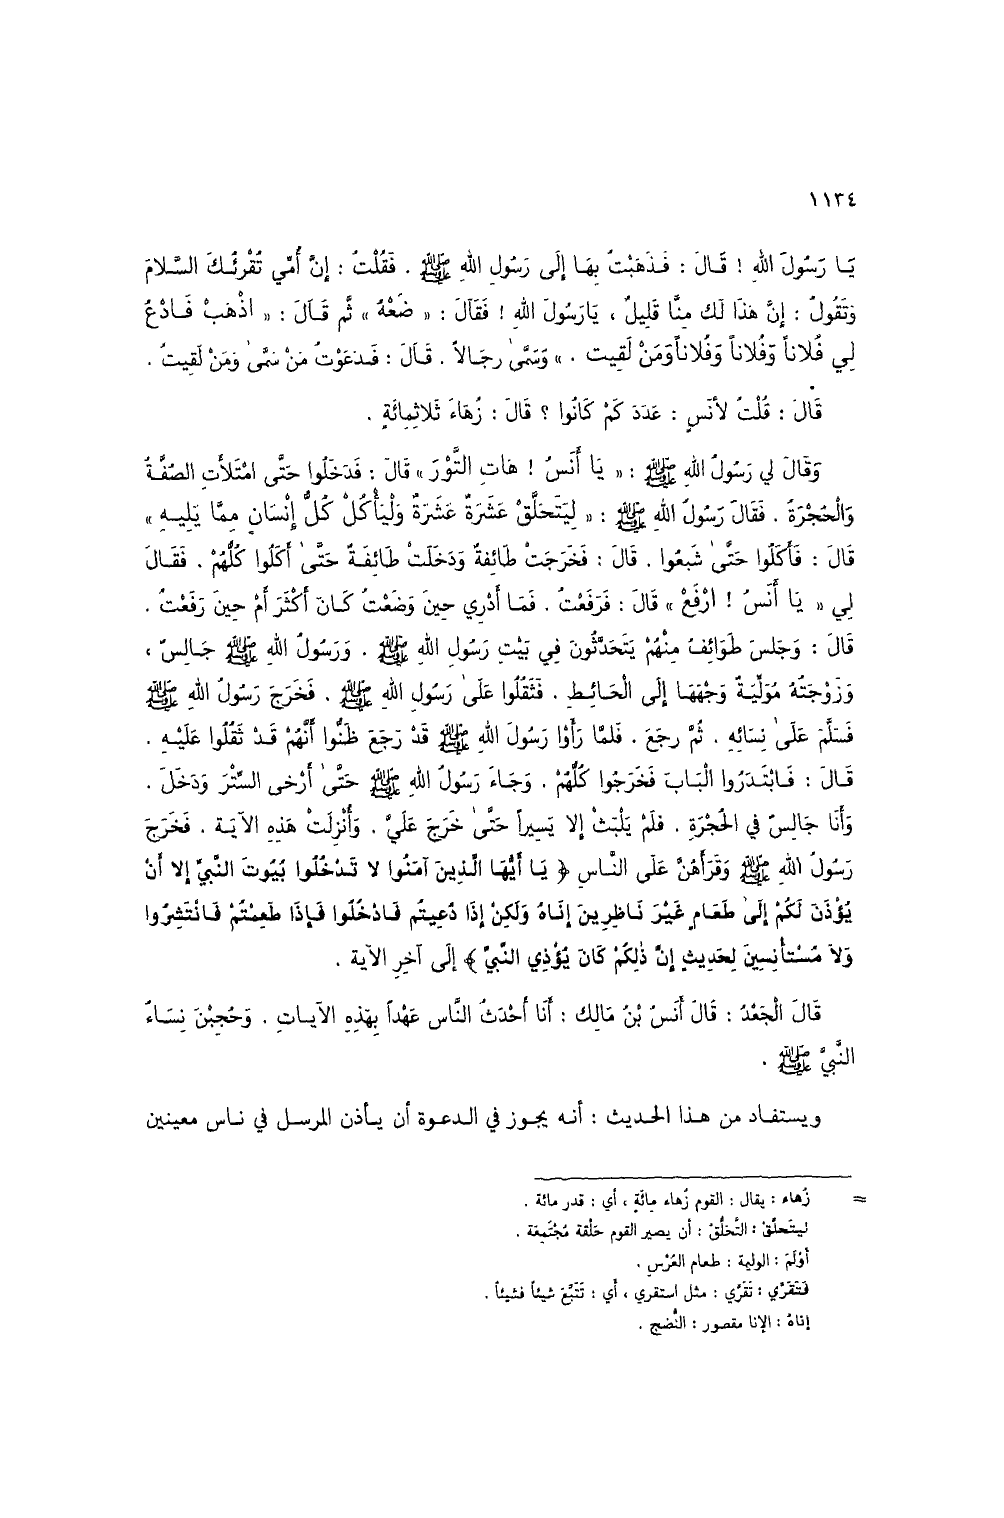 ١١٣٤
يَـا رَسُولَ اللهِ ! قَـالَ : فَـذَهَبْتُ بِهَـا إِلَى رَسُولِ اللهِ ﷺ . فَقُلْتُ : إِنَّ أُمِّي تُقْرِئُـكَ السَّـلامَ
وَتَقُولُ : إِنَّ هَذَا لَكَ مِنَّا قَلِيلٌ ، يَارَسُولَ اللهِ ! فَقَالَ : « ضَعْهُ » ثُمَّ قَـالَ : « اذْهَبْ فَـادْعُ
لِي فُلاناً وَفُلاناً وَفُلاناً وَمَنْ لَقِيت . » وَسَمَّىٰ رِجَـالاً . قَـالَ : فَـدعَوْتُ مَنْ سَمَّىٰ وَمَنْ لَقِيتُ .
قَالَ : قُلْتُ لأنَسٍ : عَدَدَ كَمْ كَانُوا ؟ قَالَ : زُهَاءَ ثَلاثِمِائَةٍ .
وَقَالَ لِي رَسُولُ اللهِ ﷺ : « يَا أَنَسُ ! هَاتِ التَّوْرَ » قَالَ : فَدَخَلُوا حَتَّى امْتَلأَتِ الصُّفَّةُ
وَالْحُجْرَةُ . فَقَالَ رَسُولُ اللهِ ﷺ : « لِيَتَحَلَّقْ عَشَرَةٌ عَشَرَةٌ وَلْيَأْكُلْ كُلُّ إِنْسَانٍ مِمَّا يَلِيـهِ »
قَالَ : فَأَكَلُوا حَتَّىٰ شَبِعُوا . قَالَ : فَخَرَجَتْ طَائِفةٌ وَدَخَلَتْ طَائِفَـةٌ حَتَّىٰ أَكَلُوا كُلُّهُمْ . فَقَـالَ
لِي « يَا أَنَسُ ! ارْفَعْ » قَالَ : فَرَفَعْتُ . فَمَـا أَدْرِي حِينَ وَضَعْتُ كَـانَ أَكْثَرَ أَمْ حِينَ رَفَعْتُ .
قَالَ : وَجَلسَ طَوَائِفُ مِنْهُمْ يَتَحَدَّثُونَ فِي بَيْتِ رَسُولِ اللهِ ﷺ . وَرَسُولُ اللهِ ﷺ جَـالِسٌ ،
وَزَوْجَتُهُ مُوَلِّيَـةٌ وَجْهَهَـا إِلَى الْحَـائِـطِ . فَثَقُلُوا عَلَىٰ رَسُولِ اللهِ ﷺ . فَخَرَجَ رَسُولُ اللهِ ﷺ
فَسَلَّمَ عَلَىٰ نِسَائِهِ . ثُمَّ رجَعَ . فَلمَّا رَأَوْا رَسُولَ اللهِ ﷺ قَدْ رَجَعَ ظَنُّوا أَنَّهُمْ قَـدْ ثَقُلُوا عَلَيْـهِ .
قَـالَ : فَـابْتَـدَرُوا الْبَابَ فَخَرجُوا كُلُّهُمْ . وَجَـاءَ رَسُولُ اللهِ ﷺ حَتَّىٰ أَرْخَى السِّتْرَ وَدَخَلَ .
وَأَنَا جَالِسٌ في الْحُجْرَةِ . فَلمْ يَلْبَثْ إِلا يَسِيراً حَتَّىٰ خَرَجَ عَلَيَّ . وَأُنْزِلَتْ هَذِهِ الآيَـة . فَخَرَجَ
رَسُولُ اللهِ ﷺ وَقَرَأَهُنَّ عَلَى النَّـاسِ ﴿ يَـا أَيُّهَـا الَّـذِينَ آمَنُوا لا تَـدْخُلُوا بُيُوتَ النَّبِيِّ إِلا أَنْ
يُؤْذَنَ لَكُمْ إِلَىٰ طَعَـامٍ غَيْرَ نَـاظِرِينَ إِنَـاهُ وَلَكِنْ إِذَا دُعِيتُم فَـادْخُلُوا فَـإِذَا طَعِمْتُمْ فَـانْتَشِرُوا
وَلاَ مُسْتَأْنِسِينَ لِحَدِيثٍ إِنَّ ذَٰلِكُمْ كَانَ يُؤْذِي النَّبِيَّ ﴾ إِلَى آخِرِ الآيَة .
قَالَ الْجَعْدُ : قَالَ أَنَسُ بْنُ مَالِك : أَنَا أَحْدَثُ النَّاسِ عَهْداً بِهَذِهِ الآيـاتِ . وَحُجِبْنَ نِسَـاءُ
النَّبِيِّ ﷺ .
ويستفـاد من هـذا الحـديث : أنـه يجـوز في الـدعـوة أن يـأذن المرسـل في نـاس معينين
= زُهاء : يقال : القوم زُهاء مِائَةٍ ، أي : قدر مائة .
ليتحلّقْ : التَّحَلُّقُ : أن يصير القوم حَلْقة مُجْتَمِعَة .
أوْلَمَ : الولية : طعام العُرْسِ .
فَتَقَرّى : تَقَرَّى : مثل استقرى ، أي : تَتَبَّعَ شيئاً فشيئاً .
إناهُ : الإنا مقصور : النُّضج .